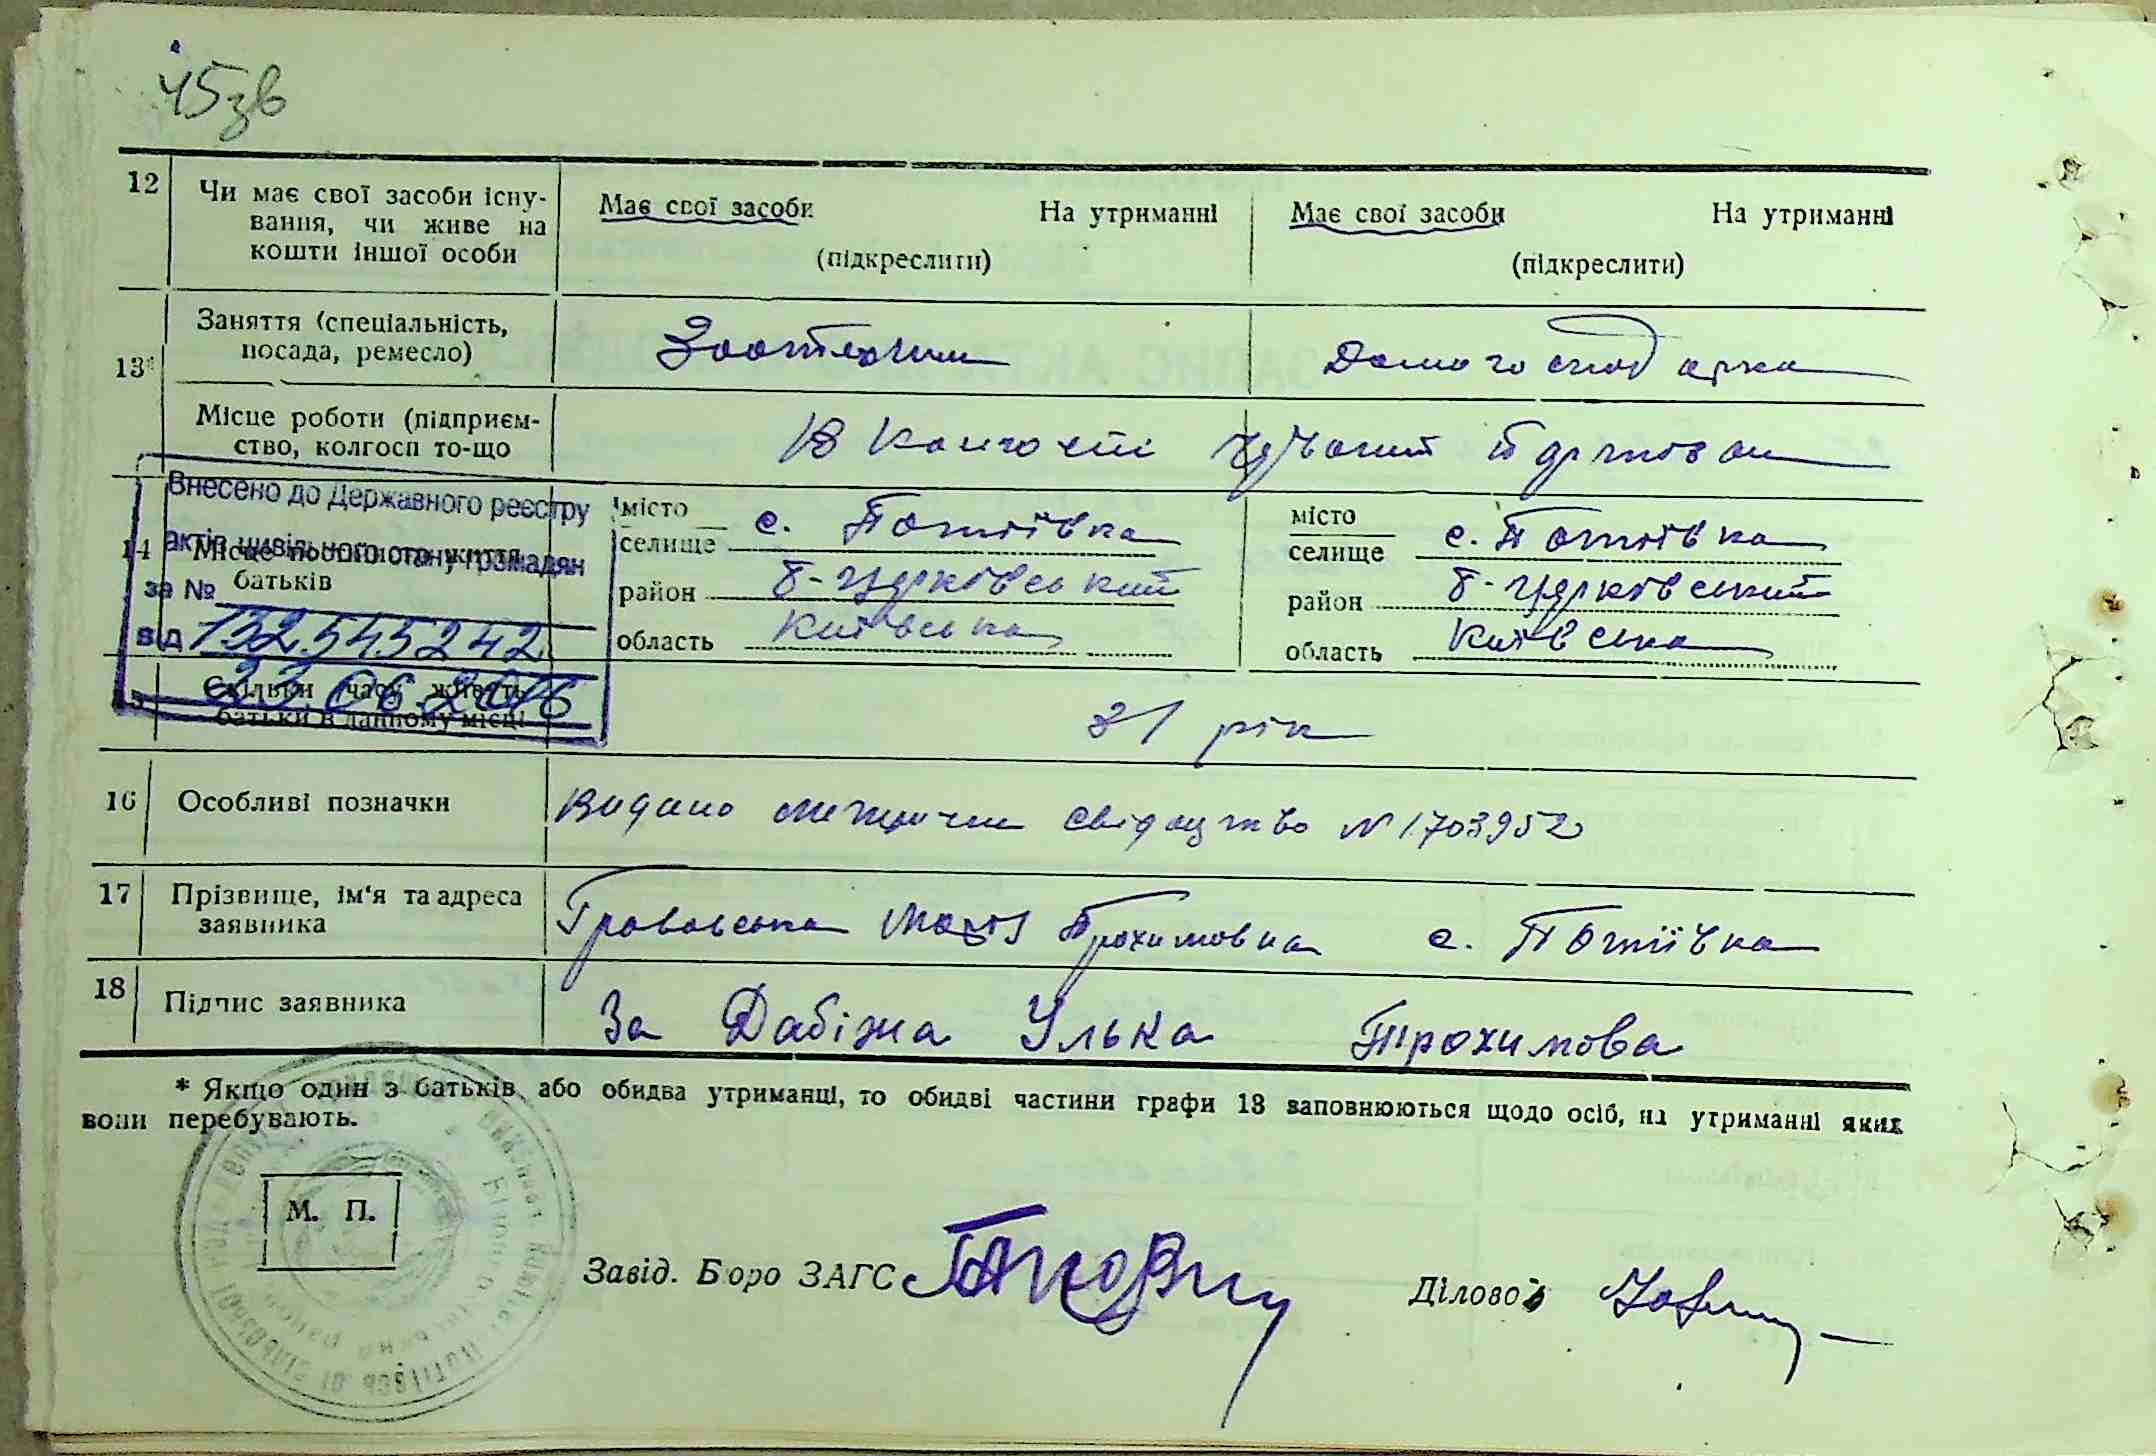 45зв
12
Чи має свої засоби існу-
вання, чи живе на
кошти іншої особи
Має свої засоби На утриманні
(підкреслити)
Має свої засоби На утриманні
(підкреслити)
13*
Заняття (спеціальність,
посада, ремесло)
Зоотехнік
Домогосподарка
Місце роботи (підприєм-
ство, колгосп то-що
В колгоспі
14
Місце постійного життя
батьків
місто
селище с. Потіївка
район Б-Церківський
область Київська
місто
селище с. Потіївка
район Б-Церківський
область Київська
Внесено до Державного реєстру
актів цивільного стану громадян
за №
132545242
від
23.06.2016
15
Скільки часу живуть
батьки в данному місці
31 рік
16
Особливі позначки
Видано свідоцтво № 1703952
17
Прізвище, ім'я та адреса
заявника
Трохимовна с. Потіївка
18
Підпис заявника
За Дабіжа Улька Трохимова
* Якщо один з батьків або обидва утриманці, то обидві частини графи 13 заповнюються щодо осіб, на утриманні яких
вони перебувають.
М. П.
Завід. Бюро ЗАГС
Діловод